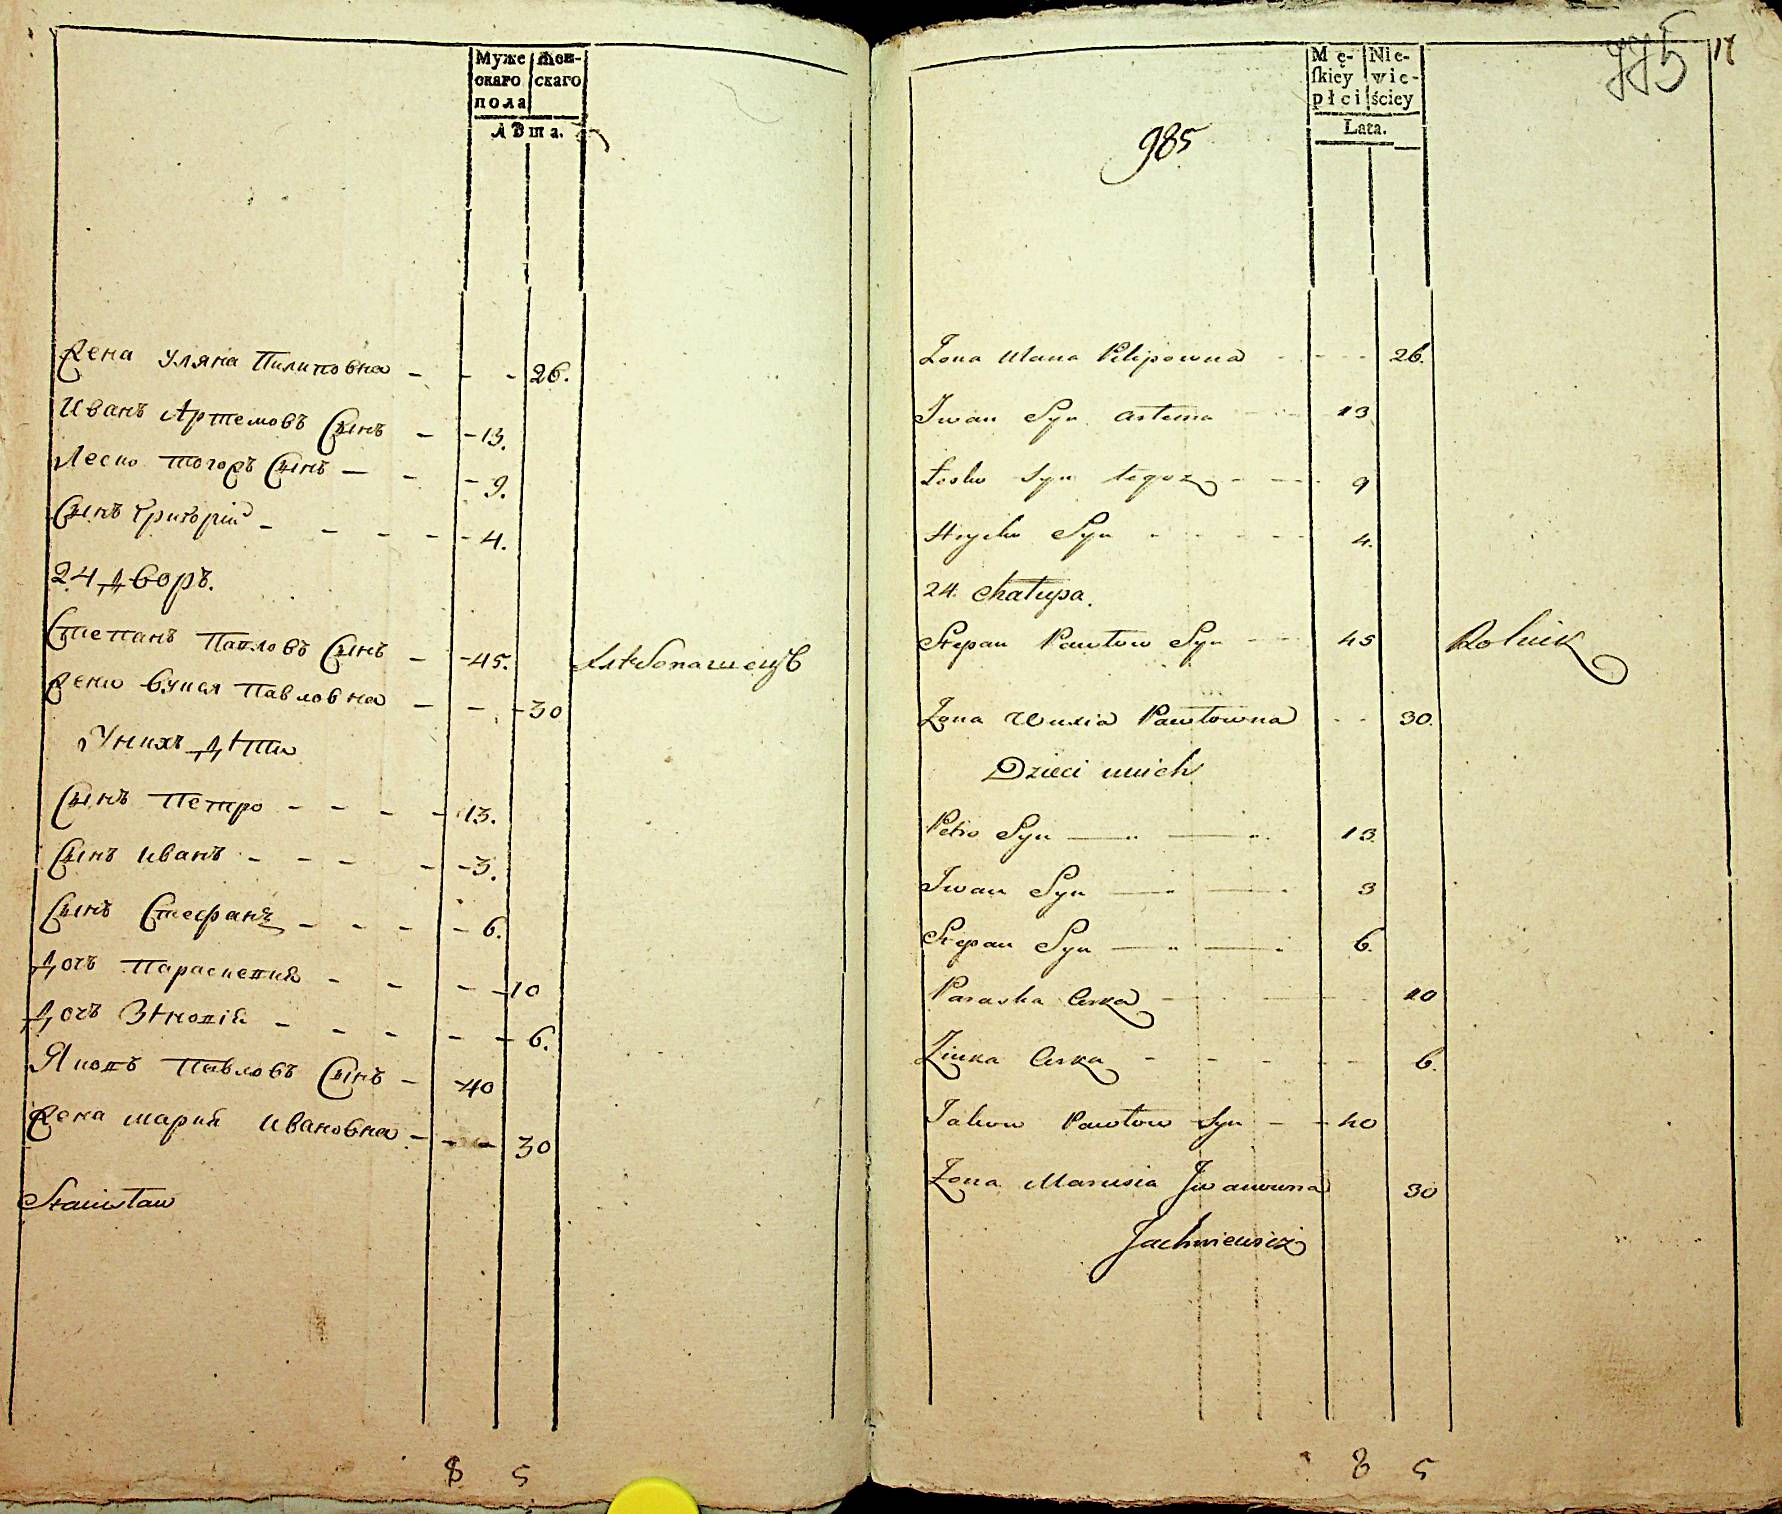 Муже Жен-
скаго скаго
пола
Лѣта.
Жена Уляна Пилиповна - - - 26.
Иванъ Артемовъ Сынъ - - 13.
Леско тогожъ Сынъ - - - 9.
Сынъ Григорій - - - - - 4.
24 дворъ.
Степанъ Павловъ Сынъ - - 45. Хлѣбопашецъ
Жена Вуися Павловна - - - 30
У нихъ дѣти
Сынъ Петро - - - - 13.
Сынъ Иванъ - - - - - 3.
Сынъ Стефанъ - - - - 6.
Дочъ Параскевия - - - - 10
Дочъ Зѣновія - - - - - - 6.
Яковъ Павловъ Сынъ - - 40
Жена Мария Ивановна - - - 30
Stanisław
8 5
985
775 17
Mę- Nie-
ſkiey wie-
płci ściey
Lata.
Zona Ulana Pilipowna - - - 26.
Iwan Syn Artema - - 13
Leśko Syn tegoz - - - 9
Hryćko Syn - - - - - 4.
24. Chałupa.
Stepan Pawłow Syn - - 45 Rolnik
Zona Wuisia Pawłowna - - 30.
Dzieci unich
Petro Syn — — 13
Iwan Syn — — 3
Stepan Syn — — 6.
Paraska Corka - - - - 10
Zinka Corka - - - - - 6.
Jakow Pawłow Syn - - 40
Zona Marusia Jwanowna 30
Jachniewicz
8 5